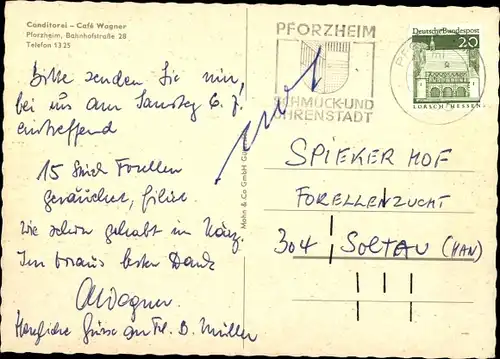 Conditorei – Café Wagner
Pforzheim, Bahnhofstraße 28
Telefon 1325
Bitte senden Sie mir,
bei uns am Samstag 6. J.
eintreffend
15 Stück Forellen
geräuchert, filiert
wie schon gehabt im März.
Im voraus besten Dank
AWagner
Herzliche Grüsse an Frl. B. Müller
Mohn & Co GmbH
PFORZHEIM
SCHMUCK-UND
UHRENSTADT
Deutsche Bundespost
20
LORSCH/HESSEN
SPIEKER HOF
FORELLENZUCHT
304 SOLTAU (HAN)